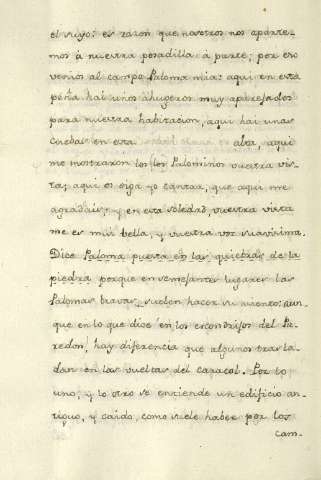 el vuyo: es razon que nosotros nos aparte-
mos à nuestra posadilla à parte; por eso
venios al campo Paloma mia: aqui en esta
peña hai unos ahugeros muy aparejados
para nuestra habitacion, aqui hai unas
cuebas en esta alta, aqui
me mostraron los Palominos vuestra vis-
ta; aqui os oiga yo cantar, que aqui me
agradais; y en esta soledad vuestra vista
me es mui bella, y vuestra voz suavisima.
Dice Paloma puesta en las quiebras de la
piedra porque en semejantes lugares las
Palomas bravas suelen hacer su asiento: aun-
que en lo que dice en los escondrijos del Pa-
redon, hay diferencia que algunos trasla-
dan en las vueltas del caracol. Por lo
uno, y lo otro se entiende un edificio an-
tiguo, y caido, como suele haber por los
cam-